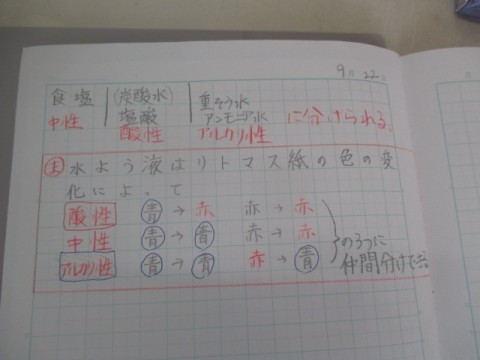 9月22日
食塩 (炭酸水) 重そう水
塩酸 アンモニア水
中性 酸性 アルカリ性 に分けられる。
ま 水よう液はリトマス紙の色の変
化によって
酸性 青→赤 赤→赤
中性 青→青 赤→赤
アルカリ性 青→青 赤→青
の3つに
仲間分けで